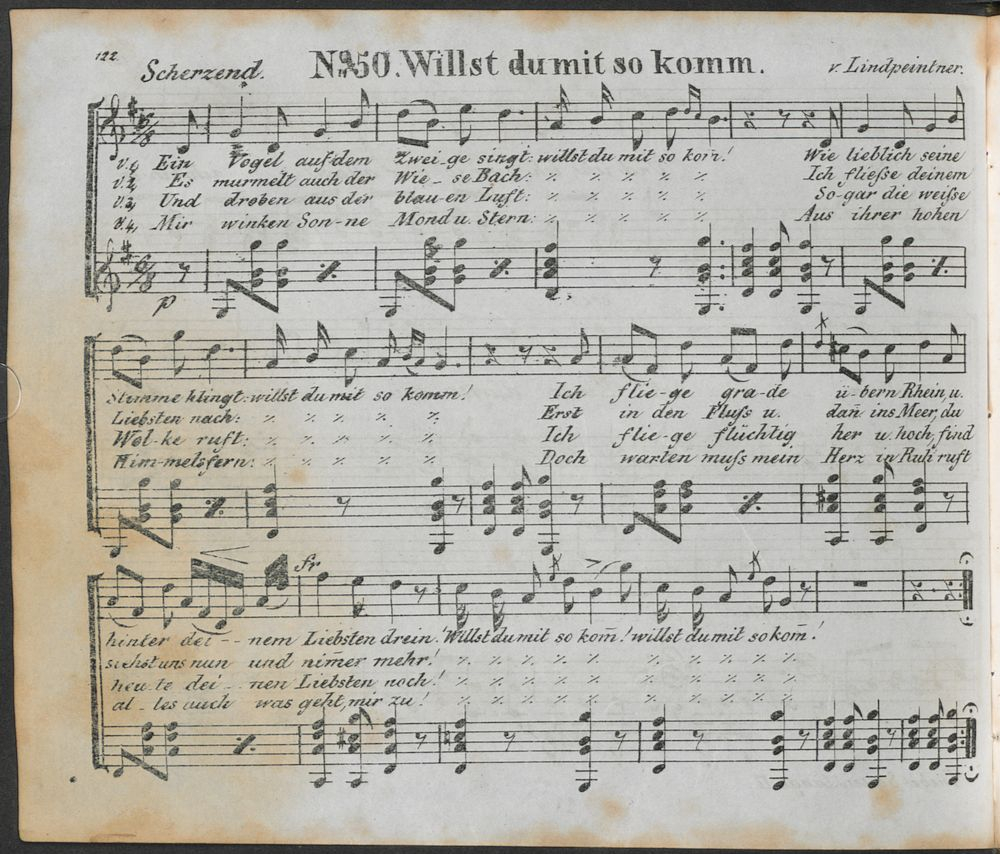 122
Scherzend. No. 50. Willst du mit so komm. v. Lindpeintner.
v.1, Ein Vogel auf dem Zwei-ge singt: willst du mit so kom̅! Wie lieblich seine
v.2, Es murmelt auch der Wie-se Bach: ٪ ٪ ٪ ٪ ٪ Ich fliefse deinem
v.3, Und droben aus der blau-en Luft: ٪ ٪ ٪ ٪ ٪ So-gar die weifse
v.4, Mir winken Son-ne Mond u. Stern: ٪ ٪ ٪ ٪ ٪ Aus ihrer hohen
p
Stimme klingt: willst du mit so komm! Ich flie-ge gra-de ü-bern Rhein, u.
Liebsten nach: ٪ ٪ ٪ ٪ ٪ Erst in den Flufs u. dan̅ ins Meer, du
Wol-ke ruft: ٪ ٪ ٪ ٪ ٪ Ich flie-ge flüchtig her u. hoch, find
Him-melsfern: ٪ ٪ ٪ ٪ ٪ Doch warten mufs mein Herz in Ruh ruft
fr
hinter dei--nem Liebsten drein! Willst du mit so kom̅! willst du mit so kom̅!
siehst uns nun und nim̅er mehr! ٪ ٪ ٪ ٪ ٪ ٪ ٪ ٪ ٪ ٪
heu-te dei--nen Liebsten noch! ٪ ٪ ٪ ٪ ٪ ٪ ٪ ٪ ٪ ٪
al-les auch was geht, mir zu! ٪ ٪ ٪ ٪ ٪ ٪ ٪ ٪ ٪ ٪